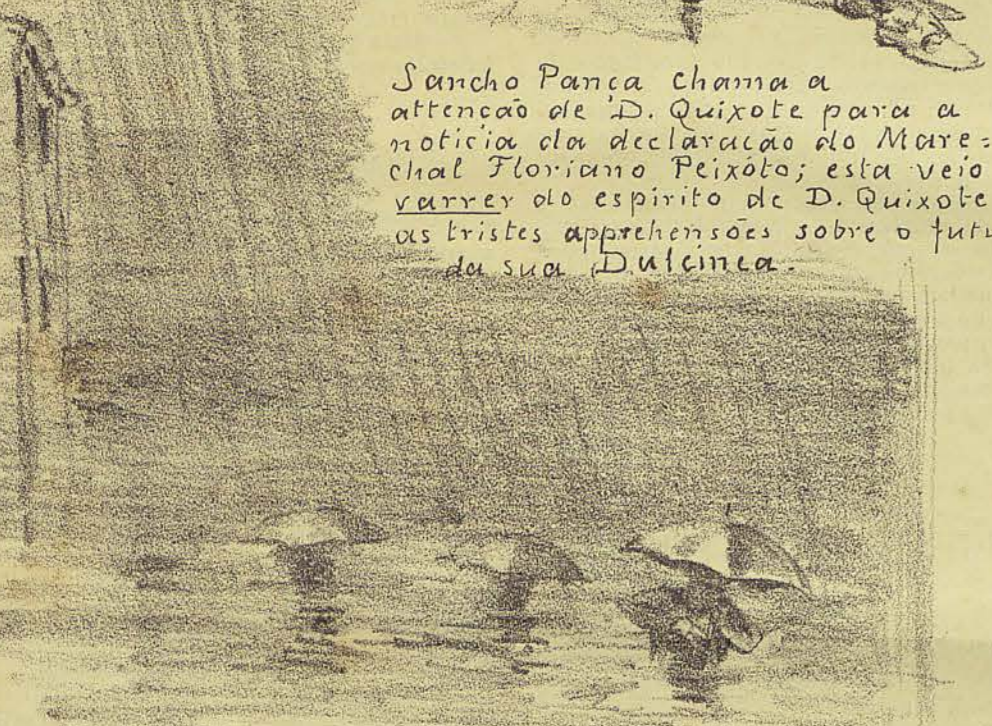 Sancho Pança chama a
attenção de D. Quixote para a
noticia da declaração do Mare=
chal Floriano Peixóto; esta veio
varrer do espirito de D. Quixote
as tristes apprehensões sobre o futu
da sua Dulcinea.